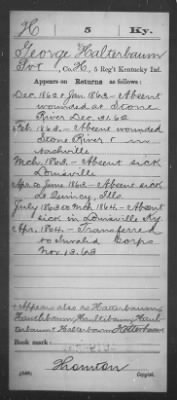 H | 5 | Ky.
George Halterbaum
Pvt, Co. H, 5 Reg't Kentucky Inf.
Appears on Returns as follows:
Dec. 1862 & Jan. 1863 - Absent
wounded at Stone
River Dec. 31. 62
Feb. 1863 - Absent wounded
Stone River
Nashville
Mch. 1863 - Absent sick
Louisville
Apr. to June 1863 - Absent sick
Quincy, Ills.
July 1863 to Mch. 1864 - Absent
sick in Louisville Ky
Apr. 1864 - Transferred
to Invalid Corps
Nov. 13. 63
Appears also as
Halterbaum
Book mark:
Thornton
Copyist.